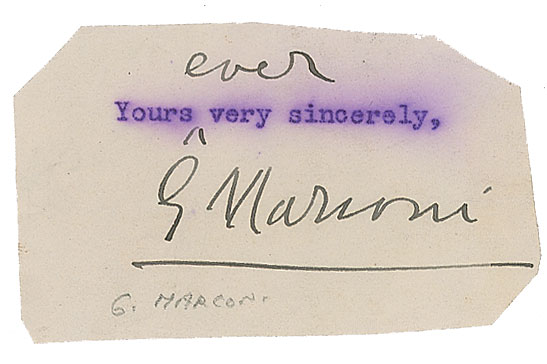 ever
Yours very sincerely,
^
G Marconi
G. MARCONI